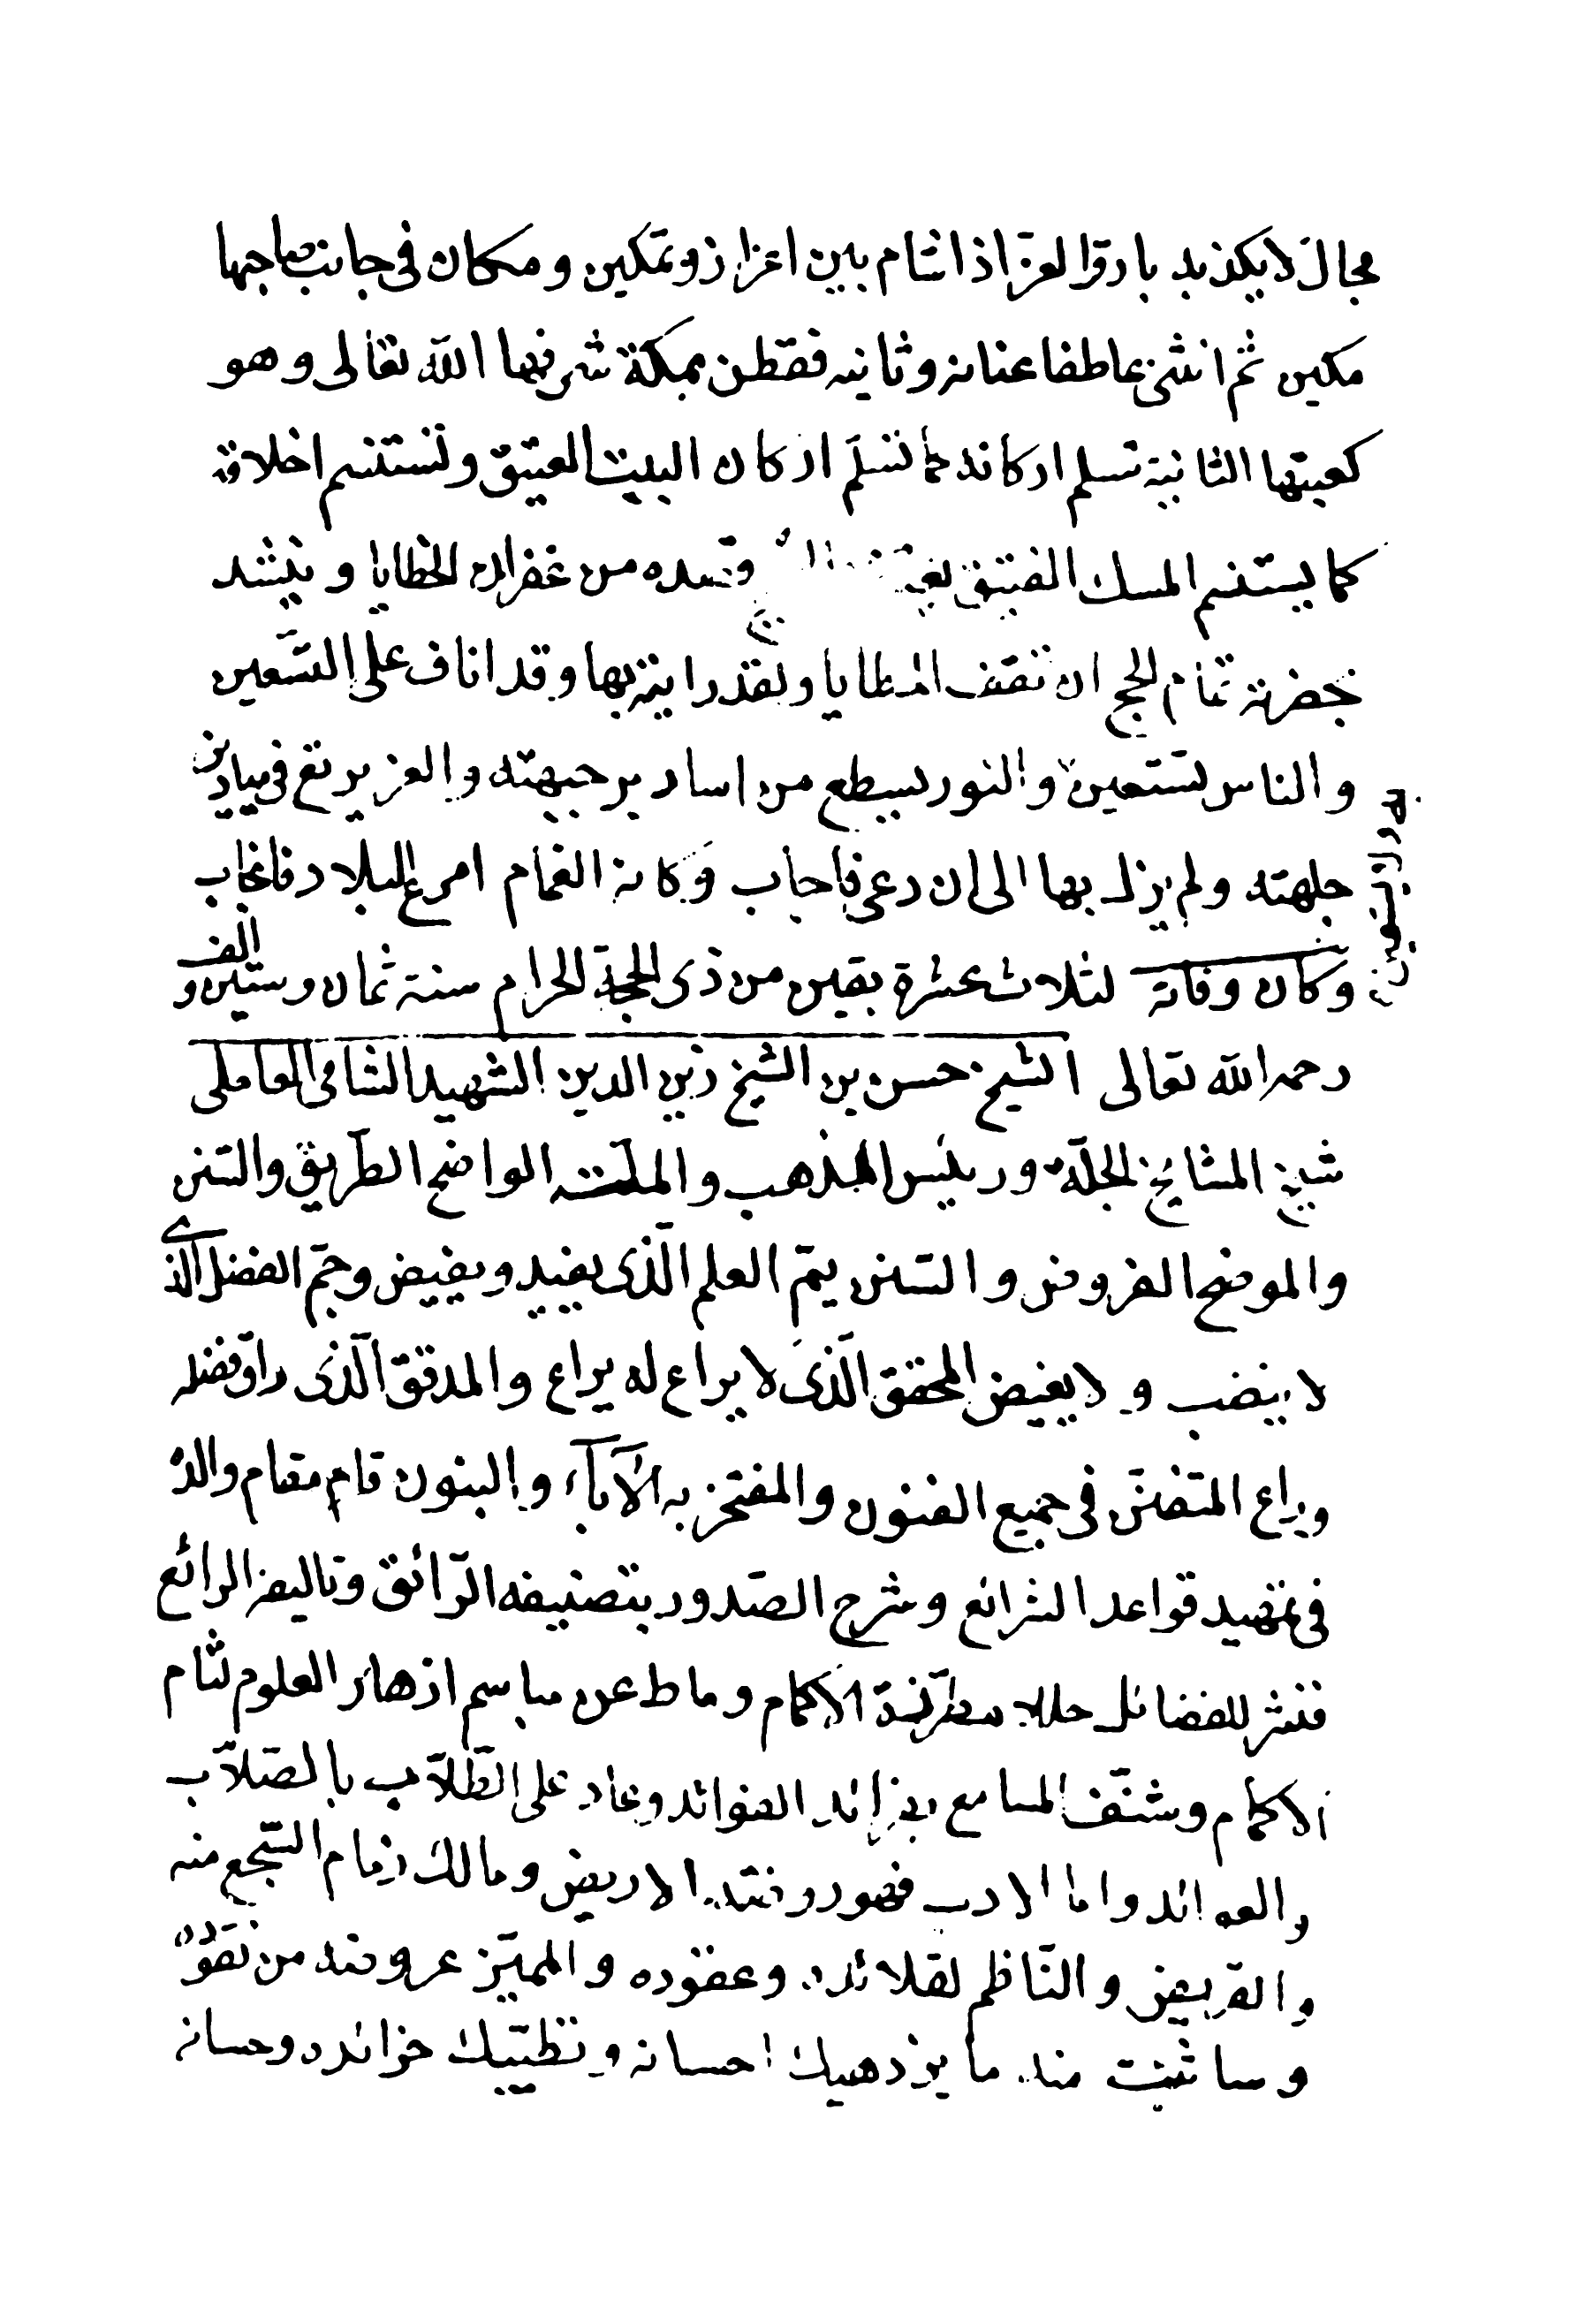 مجال لا يكذبه بارق العز اذا شام بين اعزاز وتمكين ومكان فى جانب صاحبها
مكين ثم انثنى عاطفا عنانه وثانيه فقطن بمكة شرفها الله تعالى وهو
كعبتها الثانية تستلم اركانه كما تستلم اركان البيت العتيق وتستنسم اخلاقه
كما يستنسم المسك الفتيق يعتقد قصده من غفران الخطايا وينشد
بحضرته تمام الحج ان تقف المطايا ولقد رايته بها وقد اناف على التسعين
والناس تستعين والنور يسطع من اسارير جبهته والعز يرتع فى ميادين
جلهته ولم يزل بها الى ان دعى فاجاب وكانه الغمام امرع البلاد فانجاب
وكان وفاته لثلاث عشرة بقين من ذى الحجة الحرام سنة ثمان وستين والف
رحمه الله تعالى الشيخ حسن بن الشيخ زين الدين الشهيد الشامى العاملى
شيخ المشايخ الجلة ورئيس المذهب والملة الواضح الطريق والسنن
والموضح الفروض والسنن يم العلم الذى يفيد ويفيض وجم الفضل الذى
لا ينضب ولا يغيض المحقق الذى لا يراع له يراع والمدقق الذى راق فضله
وراع المتفنن فى جميع الفنون والمفتخر به الآباء والبنون قام مقام والده
فى تمهيد قواعد الشرائع وشرح الصدور بتصنيفه الرائق وتاليفه الرائع
فنشر للفضائل حللا مطرزة الاكمام وماط عن مباسم ازهار العلوم لثام
الاكمام وشنف المسامع بفرائد الفوائد وعاد على الطلاب بالصلات
والعوائد واما الادب فهو روضه الاريض ومالك زمام السجع منه
والقريض والناظم لقلائده وعقوده والمميز عروضه من نقوده
وساثبت منه ما يزدهيك احسانه وتطبيك خرائده وحسانه